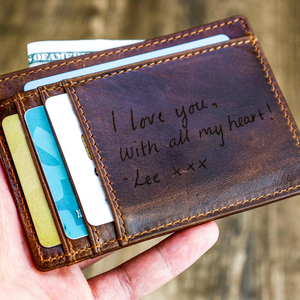 OF AMERICA
I love you,
With all my heart!
- Lee xxx